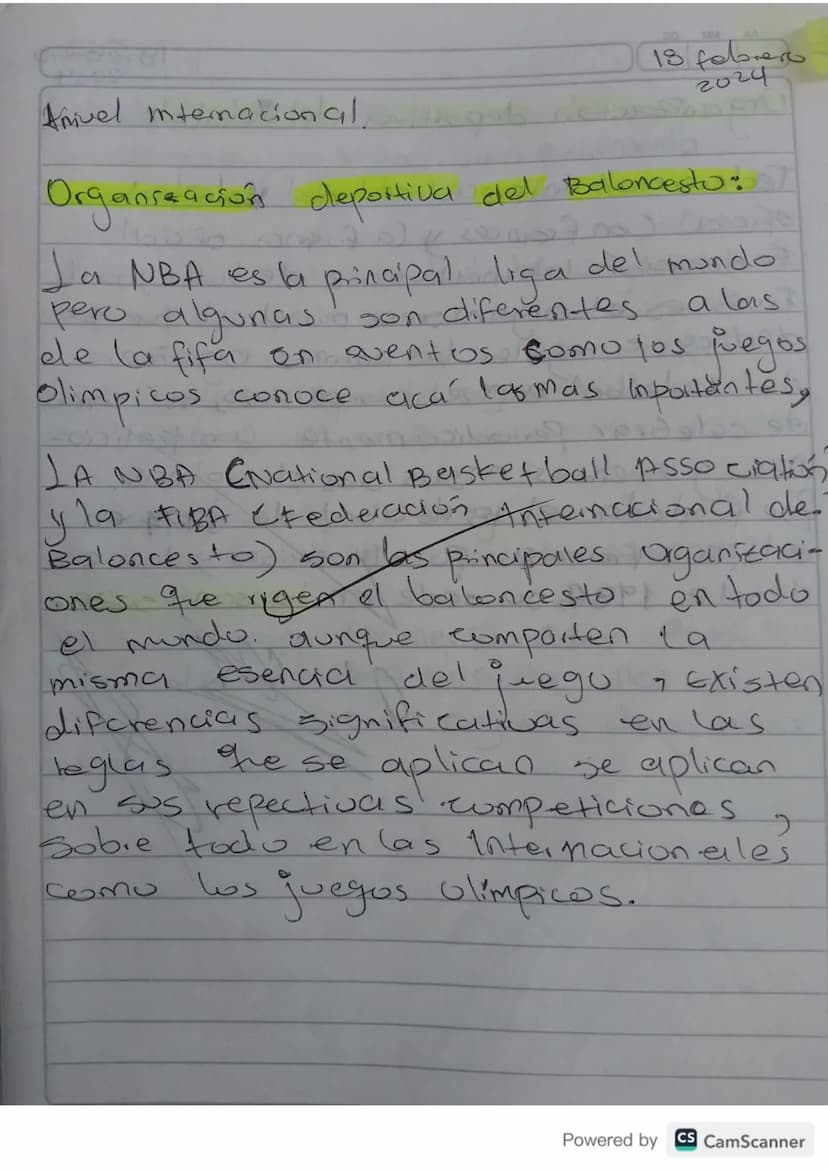 18 febrero
2024
Anivel internacional.
Organización deportiva del Baloncesto:
La NBA es la principal liga del mundo
pero algunas son diferentes a las
de la fifa en eventos como los juegos
Olimpicos conoce acá las mas inportantes,
LA NBA (National Basketball Association
y la FIBA (Federación Internacional de
Baloncesto) son las principales organizaci-
ones que rigen el baloncesto en todo
el mundo. aunque comparten la
misma esencia del juego, existen
diferencias significativas en las
reglas que se aplican se aplican
en sus repectivas competiciones,
Sobre todo en las internacionales
como los juegos olímpicos.
Powered by CS CamScanner